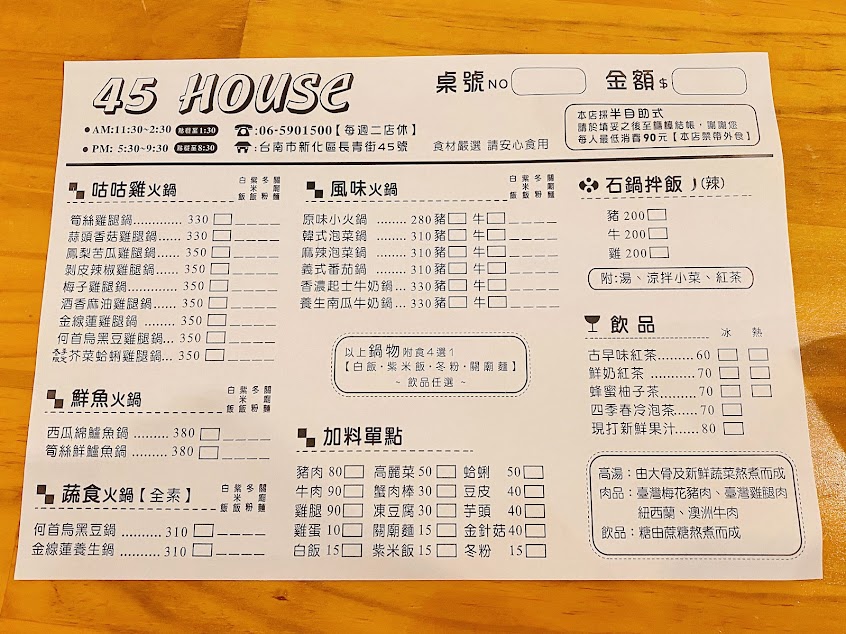 45 HOUSE
桌號NO
金額$
AM:11:30~2:30 點餐至1:30
PM: 5:30~9:30 點餐至8:30
:06-5901500【每週二店休】
:台南市新化區長青街45號
食材嚴選 請安心食用
本店採半自助式
請於填妥之後至櫃檯結帳,謝謝您
每人最低消費90元【本店禁帶外食】
咕咕雞火鍋
白飯 紫米飯 冬粉 關廟麵
筍絲雞腿鍋............. 330
蒜頭香菇雞腿鍋...... 350
鳳梨苦瓜雞腿鍋...... 350
剝皮辣椒雞腿鍋...... 350
梅子雞腿鍋............. 350
酒香麻油雞腿鍋...... 350
金線蓮雞腿鍋 ........ 350
何首烏黑豆雞腿鍋... 350
冬季限定芥菜蛤蜊雞腿鍋... 350
鮮魚火鍋
白飯 紫米飯 冬粉 關廟麵
西瓜綿鱸魚鍋 ........ 380
筍絲鮮鱸魚鍋 ........ 380
蔬食火鍋【全素】
白飯 紫米飯 冬粉 關廟麵
何首烏黑豆鍋 ........ 310
金線蓮養生鍋 ........ 310
風味火鍋
白飯 紫米飯 冬粉 關廟麵
原味小火鍋 ........ 280 豬 牛
韓式泡菜鍋 ........ 310 豬 牛
麻辣泡菜鍋 ........ 310 豬 牛
義式番茄鍋 ........ 310 豬 牛
香濃起士牛奶鍋... 330 豬 牛
養生南瓜牛奶鍋... 330 豬 牛
以上鍋物附食4選1
【白飯・紫米飯・冬粉・關廟麵】
~ 飲品任選 ~
加料單點
豬肉 80 高麗菜 50 蛤蜊 50
牛肉 90 蟹肉棒 30 豆皮 40
雞腿 90 凍豆腐 30 芋頭 40
雞蛋 10 關廟麵 15 金針菇 40
白飯 15 紫米飯 15 冬粉 15
石鍋拌飯 (辣)
豬 200
牛 200
雞 200
附:湯、涼拌小菜、紅茶
飲品
冰 熱
古早味紅茶........60
鮮奶紅茶 ...........70
蜂蜜柚子茶.........70
四季春冷泡茶......70
現打新鮮果汁......80
高湯:由大骨及新鮮蔬菜熬煮而成
肉品:臺灣梅花豬肉、臺灣雞腿肉
紐西蘭、澳洲牛肉
飲品:糖由蔗糖熬煮而成